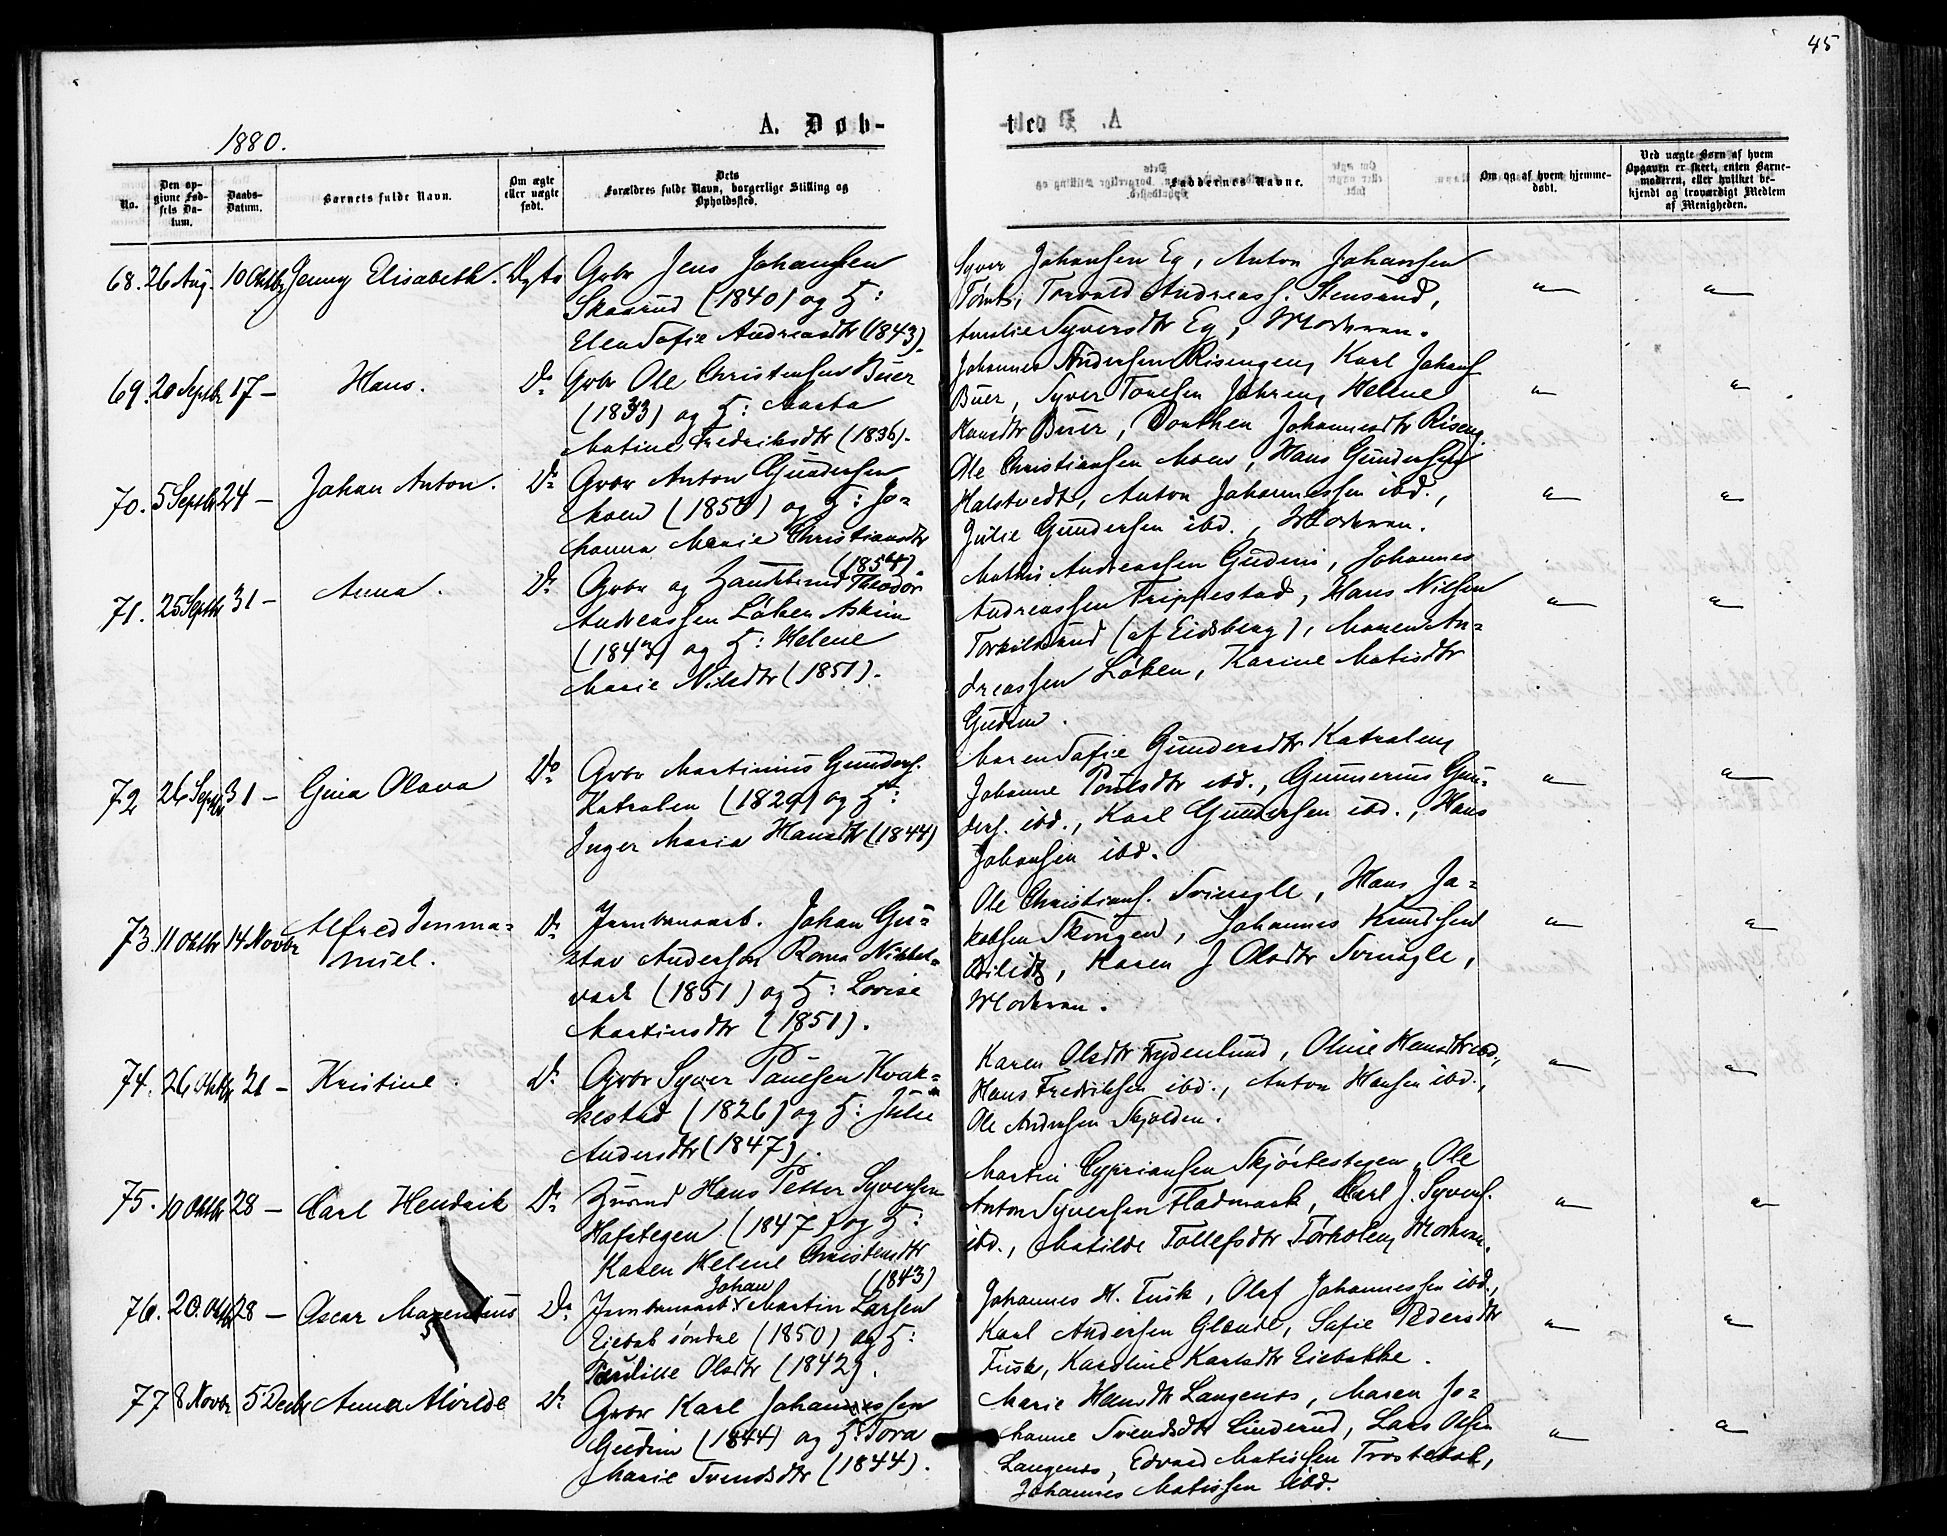 45
1880.
A. Døb-
te
No.
Den op-
givne Fød-
sels Da-
tum.
Daabs-
Datum.
Barnets fulde Navn.
Om ægte
eller uægte
født.
Dets
Forældres fulde Navn, borgerlige Stilling og
Opholdssted.
Faddernes Navne.
Om og af hvem hjemme-
døbt.
Ved uægte Børn af hvem
Opgaven er skeet, enten Barne-
moderen, eller hvilket be-
kjendt og troværdigt Medlem
af Menigheden.
68. 26 Aug. 10 Oktbr Jenny Elisabeth. Ægte Gvbr Jens Johansen
Skaarud (1840) og H:
Elen Sofie Andreasdtr (1843).
Syver Johansen Eg, Anton Johansen
Tomb, Torvald Andreass. Stensrud,
Amalie Syversdtr Eg, Moderen.
69. 20 Septbr 17 – Hans. Do Gvbr Ole Christensen Buer
(1833) og H: Marta
Matine Fredriksdtr (1836).
Johannes Andersen Risengen, Karl Johans.
Buer, Syver Tonesen Jahren, Helene
Hansdtr Buer, Dorthea Johannesdtr Riseng.
70. 5 Septbr 24 – Johan Anton. Do Gvbr Anton Gundersen
Moen (1850) og H: Jo-
hanna Marie Christiansdtr
(1854).
Ole Christiansen Moen, Hans Gundersen
Halstvedt, Anton Johannessen ibd.,
Julie Gundersen ibd., Moderen.
71. 25 Septbr 31 – Anna. Do Gvbr og Landbrud Theodor
Andreassen Løken Askim
(1843) og H: Helene
Marie Nilsdtr (1851).
Mathis Andreassen Gudim, Johannes
Andreassen Trippestad, Hans Nilsen
Torkilsrud (af Eidsberg), Maren An-
dreassen Løken, Karine Matisdtr
Gudim.
72 26 Septbr 31 – Gina Olava Do Gvbr Martinius Gunders.
Katralen (1829) og H:
Inger Maria Hansdtr (1844)
Maren Sofie Gundersdtr Katralen,
Johanne Poulsdtr ibd., Gunnerius Gun-
ders. ibd., Karl Gundersen ibd., Hans
Johansen ibd.
73. 11 Oktbr 14 Novbr Alfred Imma-
nuel. Do Jernbanearb. Johan Gu-
stav Anderson Roms Nikkel-
verk (1851) og H: Lovise
Martinsdtr (1851).
Ole Christians. Svingle, Hans Ja-
kobsen Skougen, Johannes Knudsen
Karen J Olsdtr Svingle,
Moderen.
74. 26 Oktbr 21 – Kristine. Do Gvbr Syver Paulsen Kvak-
kestad (1826) og H: Julie
Andersdtr (1847).
Karen Olsdtr Frydenlund, Oline Hansdtr ibd.,
Hans Fredriksen ibd., Anton Hansen ibd.,
Ole Andersen Skjolden.
75. 10 Oktbr 28 – Carl Hendrik Do Husmd Hans Petter Syversen
Hafstegen (1847) og H:
Karen Helene Christensdtr
(1843)
Martin Cypriansen Skjørtestegen, Ole
Anton Syversen Fladmark, Carl J. Syvers.
ibd., Matilde Tollefsdtr Torkolen, Modren.
76. 20. Oktbr 28 – Oscar Maxentius Do Jernbanearb. Johan Martin Larsen
Eietab søndre (1850) og H:
Paulille Olsdtr (1842).
Johannes H. Fusk, Olaf Johannessen ibd.,
Karl Andersen Glende, Sofie Pedersdtr
Fusk, Karoline Karlsdtr Eiebakke.
77 8 Novbr 5 Decbr Anna Alvilde Do Gvbr Karl Johannessen
Gudim (1844) og H: Tora
Marie Svendsdtr (1844).
Marie Hansdtr Langenes, Maren Jo-
hanne Svendsdtr Linderud, Lars Olsen
Langenes, Edvard Matissen Trostedal,
Johannes Matissen ibd.